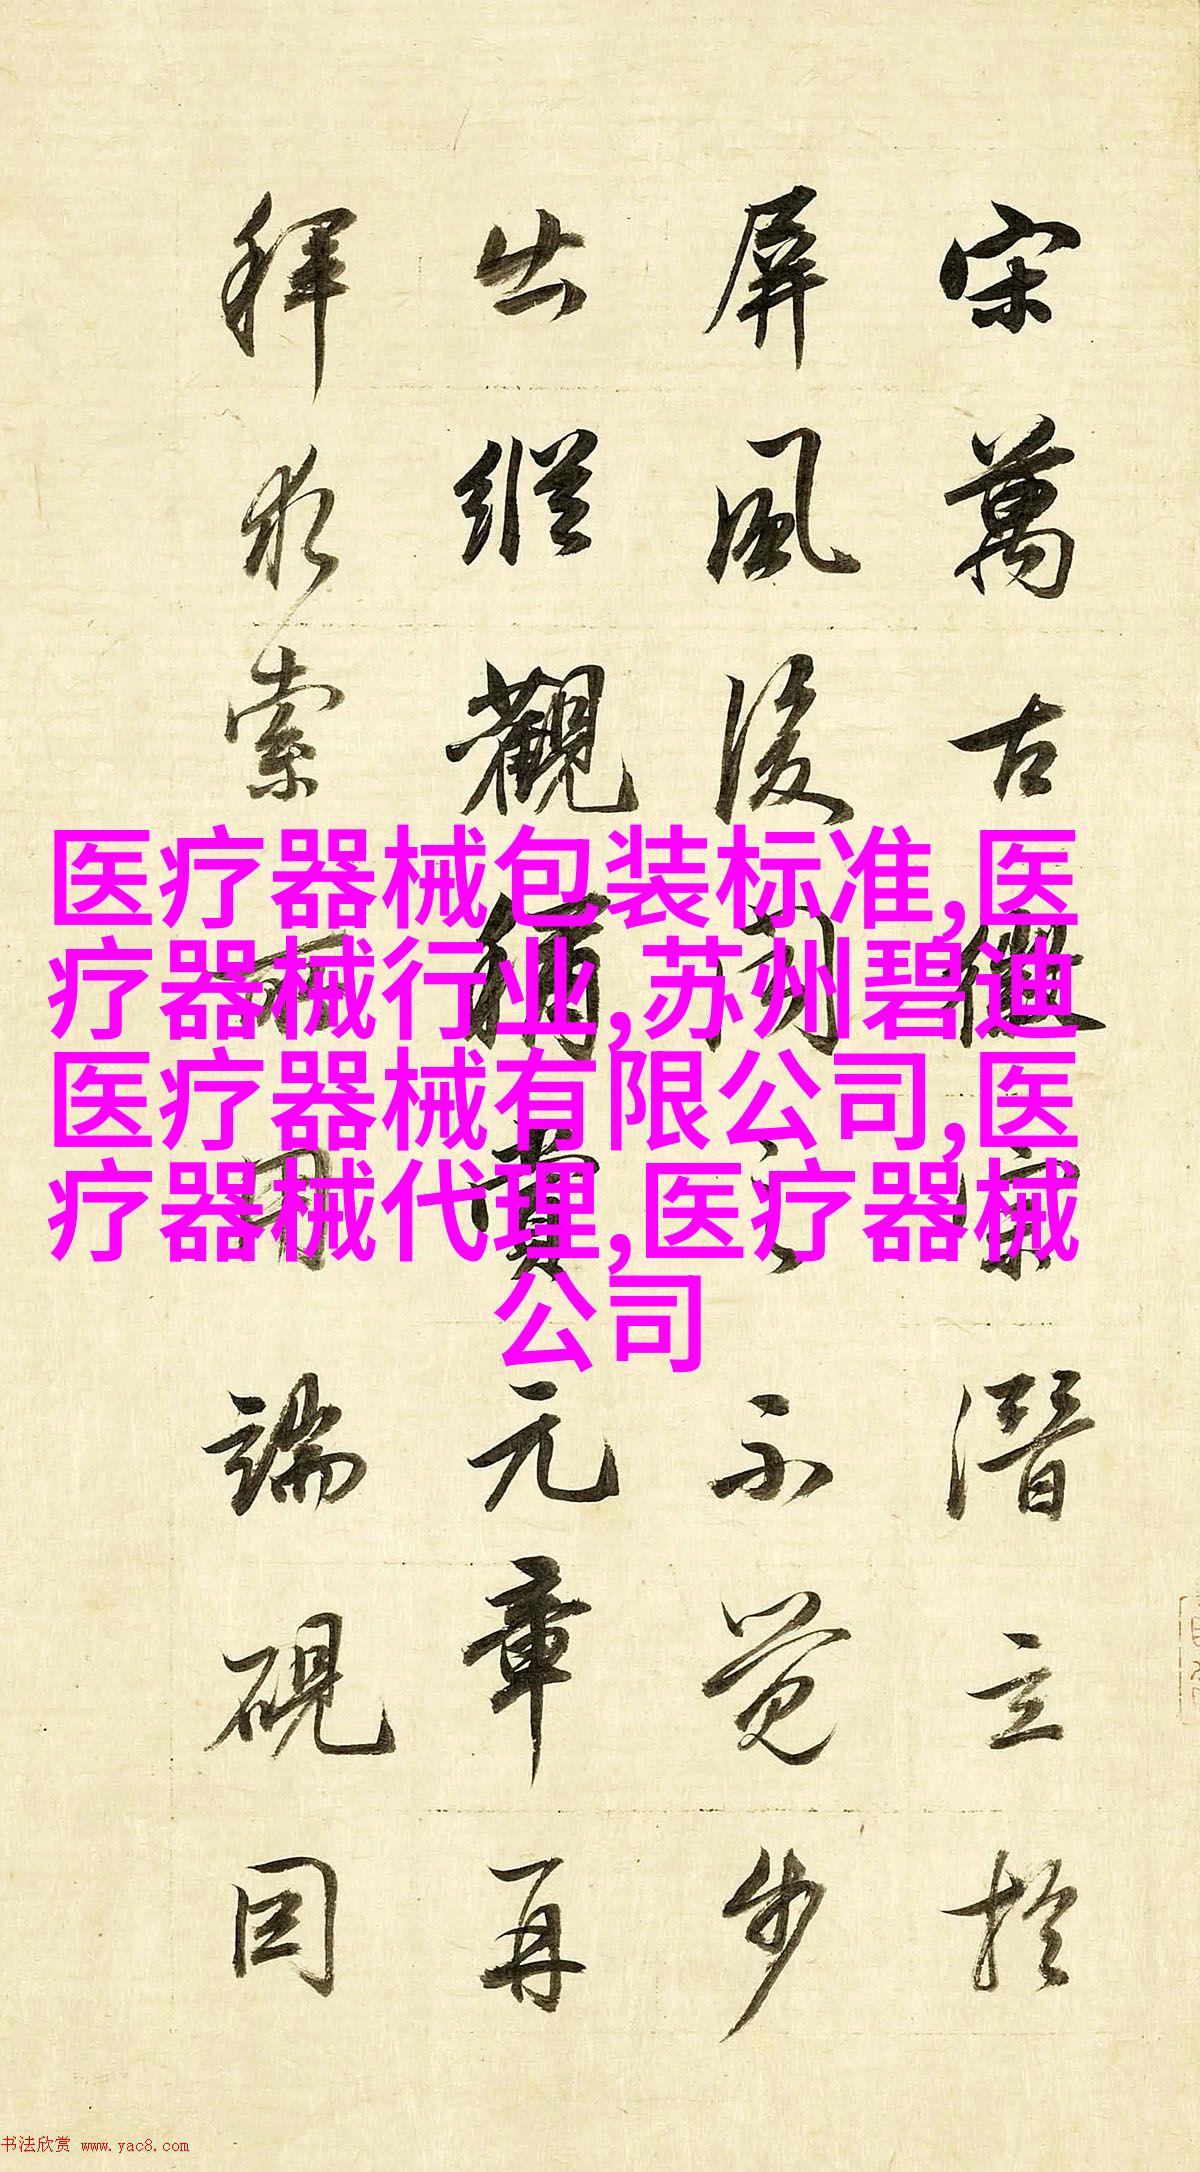 宋萬古徽宗潛立於
屏風後聞之不覺步
出縱觀稱賞元章再
拜求索所用端硯因
医疗器械包装标准,医
疗器械行业,苏州碧迪
医疗器械有限公司,医
疗器械代理,医疗器械
公司
书法欣赏 www.yac8.com